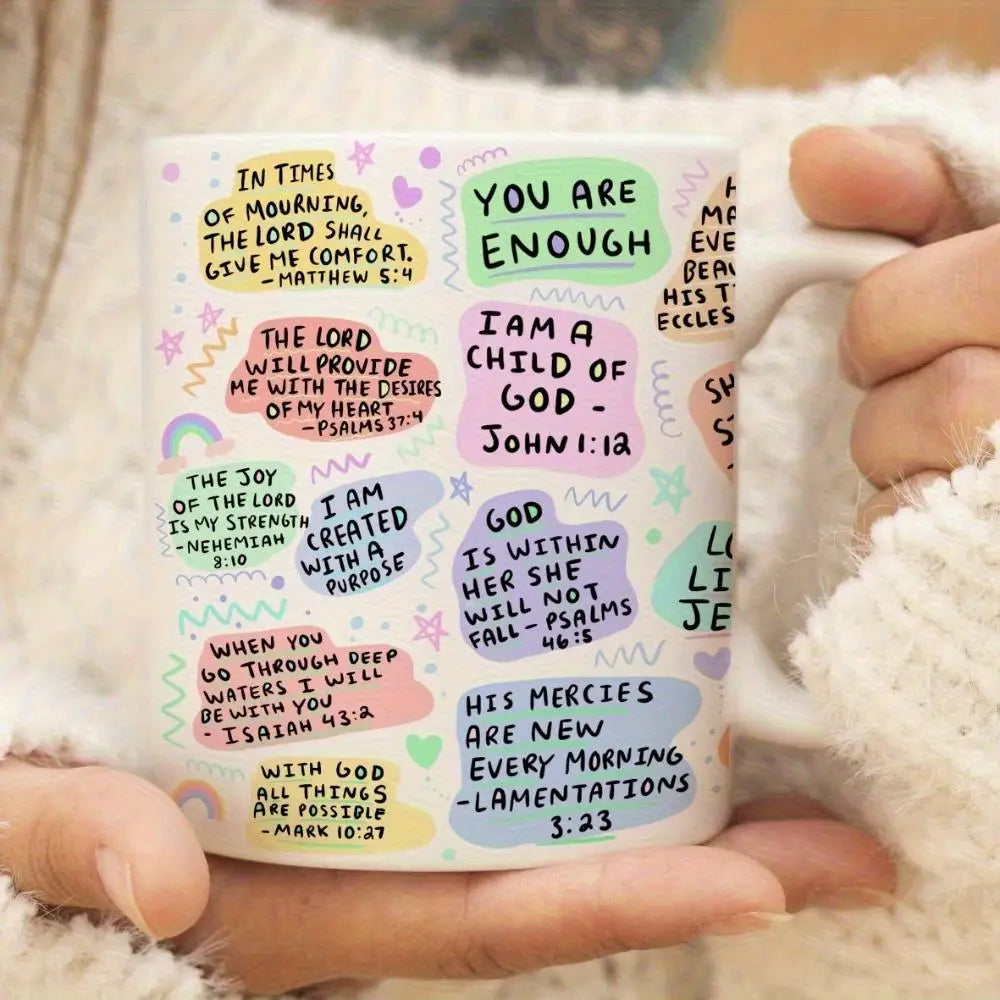 IN TIMES
OF MOURNING,
THE LORD SHALL
GIVE ME COMFORT.
-MATTHEW 5:4
YOU ARE
ENOUGH
H
MA
EVE
BEAU
HIS T
ECCLES
THE LORD
WILL PROVIDE
ME WITH THE DESIRES
OF MY HEART
-PSALMS 37:4
I AM A
CHILD OF
GOD -
JOHN 1:12
SH
S
THE JOY
OF THE LORD
IS MY STRENGTH
-NEHEMIAH
8:10
I AM
CREATED
WITH A
PURPOSE
GOD
IS WITHIN
HER SHE
WILL NOT
FALL - PSALMS
46:5
L
LI
JE
WHEN YOU
GO THROUGH DEEP
WATERS I WILL
BE WITH YOU
- ISAIAH 43:2
HIS MERCIES
ARE NEW
EVERY MORNING
-LAMENTATIONS
3:23
WITH GOD
ALL THINGS
ARE POSSIBLE
-MARK 10:27